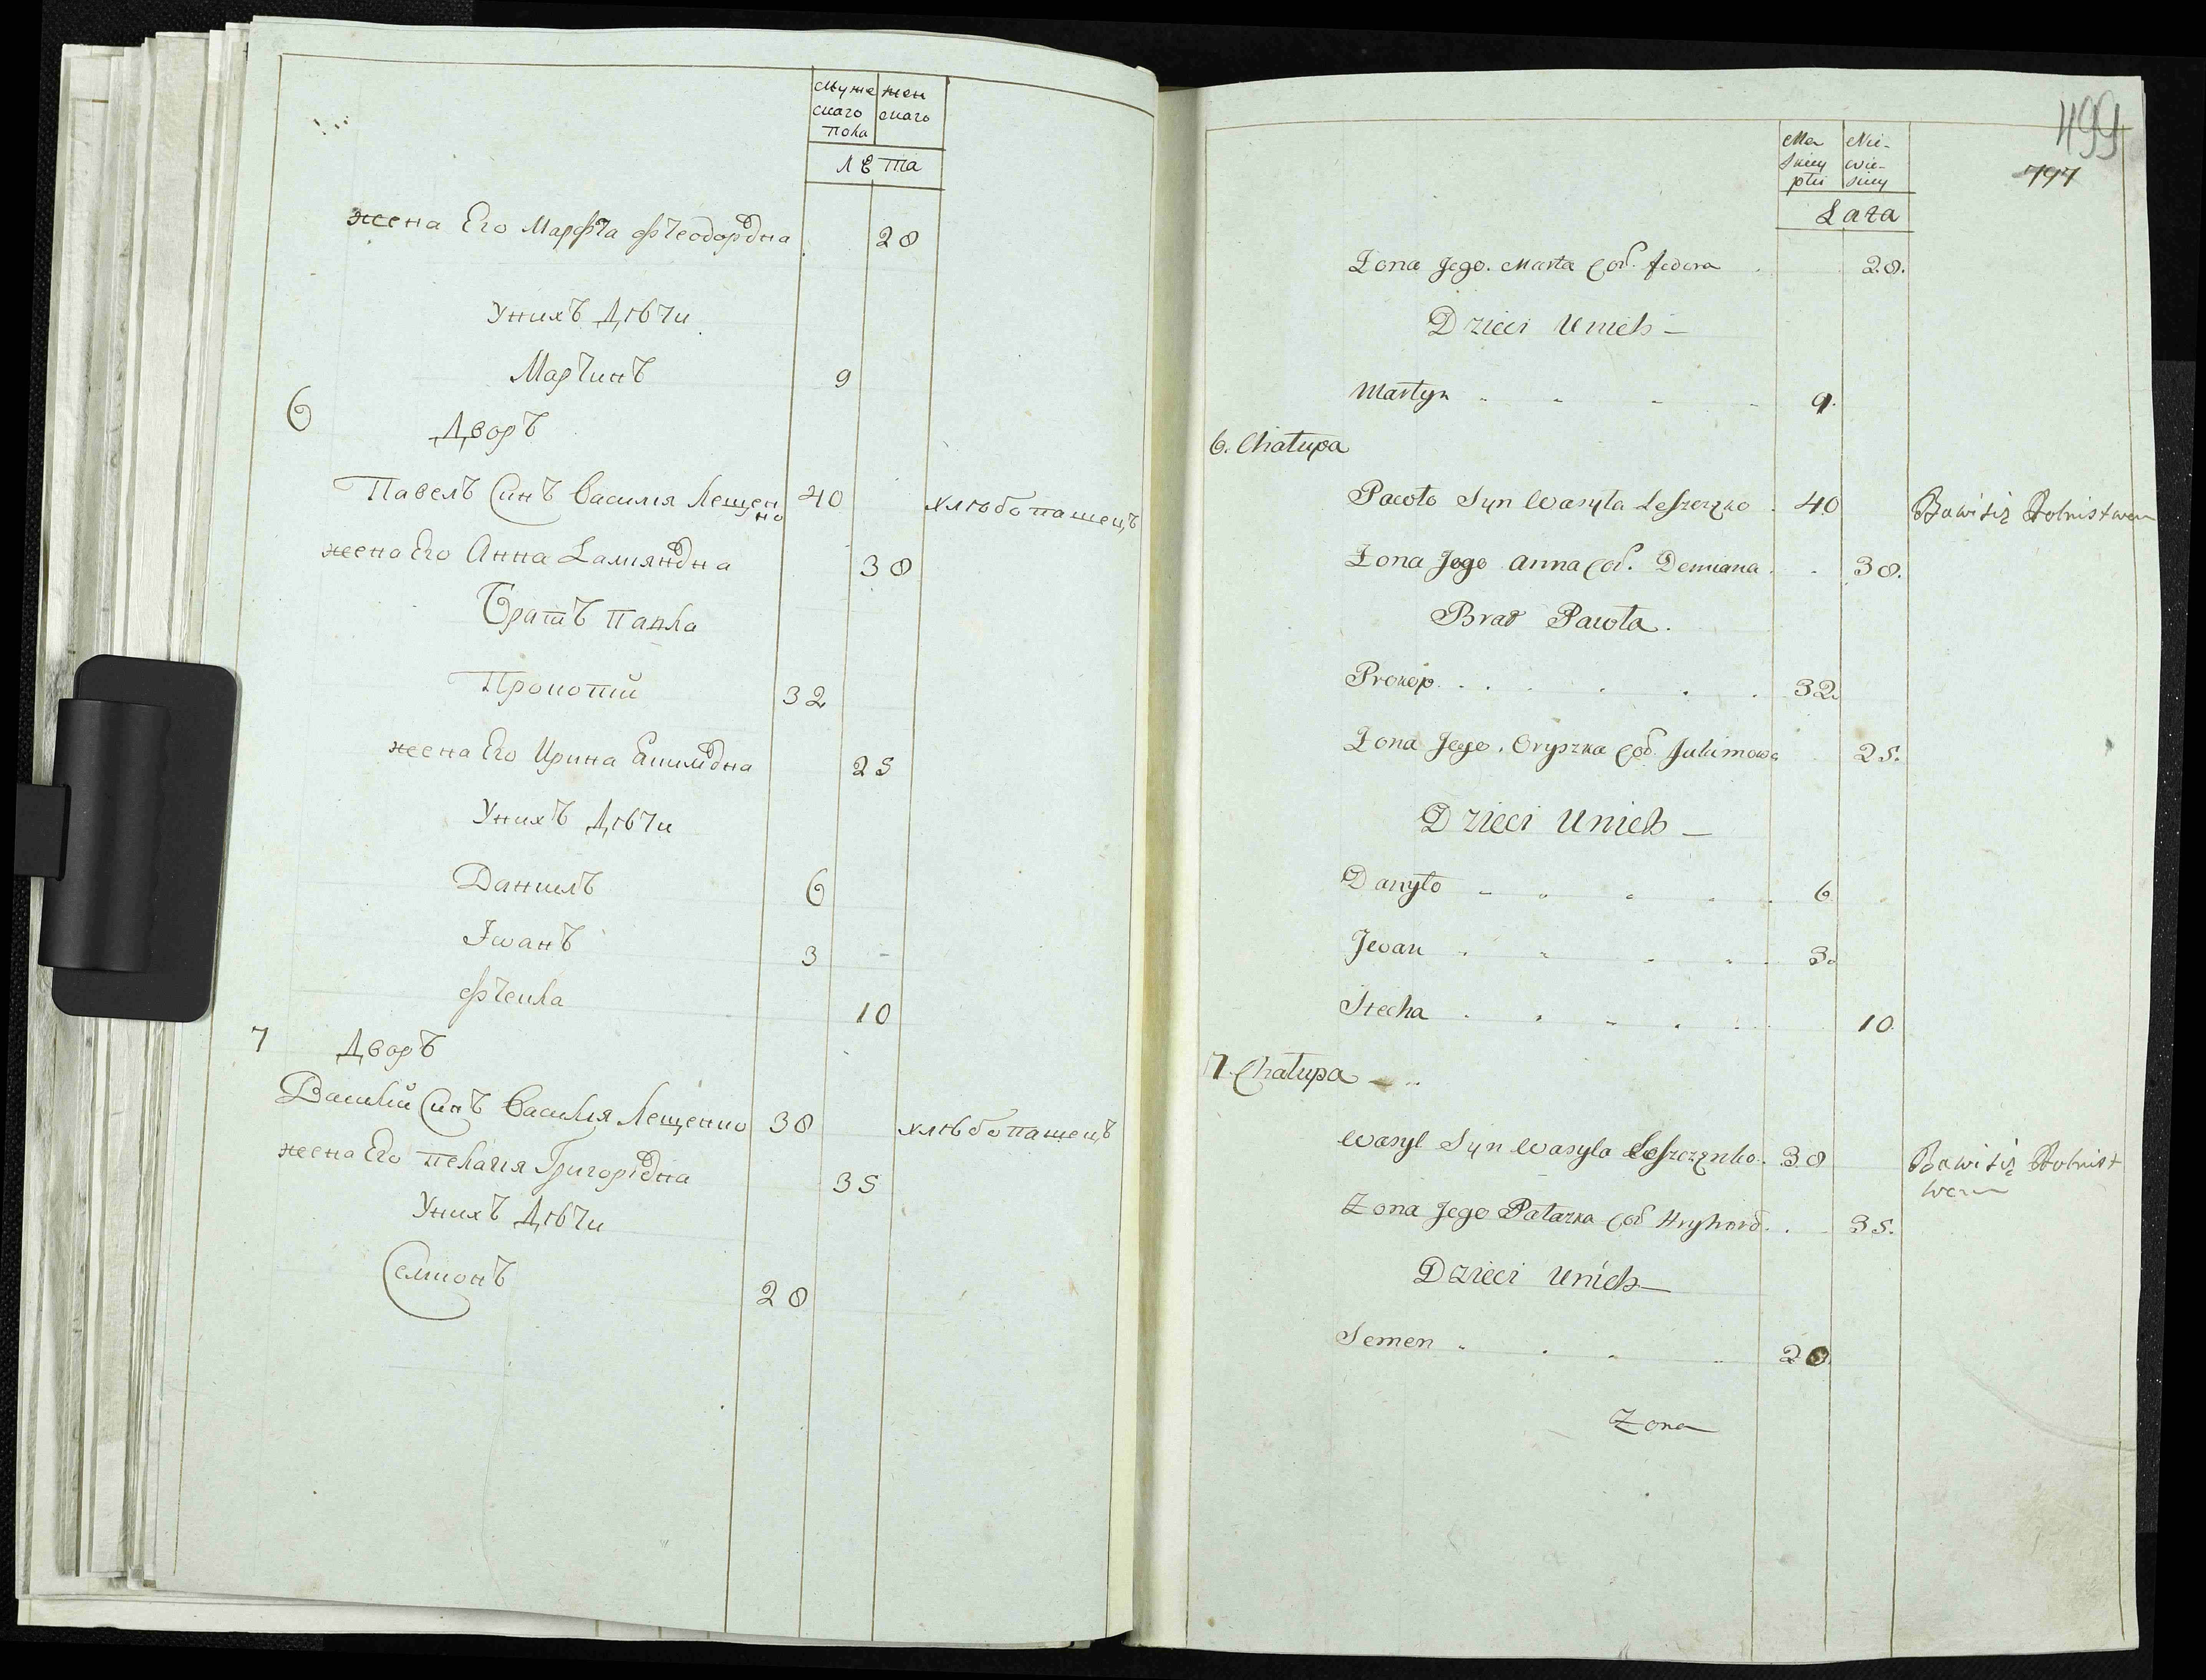 муже жен
скаго скаго
пола
лѣта
жена Его Марфта Фтеодоровна 28
Унихъ Дѣти
Мартинъ 9
6 Дворъ
Павелъ Синъ Василия Лещен 40 хлѣбопашецъ
ко
жена Его Анна Дамяновна 38
Братъ Павла
Прокопий 32
жена Его Ирина Екимовна 25
Унихъ Дѣти
Даниилъ 6
Іванъ 3
Фтекла 10
7 Дворъ
Василий Синъ Василия Лещенко 38 хлѣбопашецъ
жена Его Пелагия Григоріовна 35
Унихъ Дѣти
Семионъ 28
499
797
Mę Nie-
skiey wie-
płci skiey
Lata
Żona Jego Marta Cor. Fedora 28.
Dzieci Unich
Martyn 9.
6. Chałupa
Pawło Syn Wasyla Leszczęko 40 Bawi się Rolnistwem
Żona Jego Anna Cor. Demiana 38.
Brat Pawła.
Prokop 32.
Żona Jego Oryszka Cor. Jukimowa 25.
Dzieci Unich
Danyło 6
Jwan 3.
Stecha 10.
7. Chałupa
Wasyl Syn Wasyla Leszczęnko. 38 Bawi się Rolnist
wem
Żona Jego Pałazka Cor Hryhord. 35.
Dzieci Unich
Semen 28.
Żona